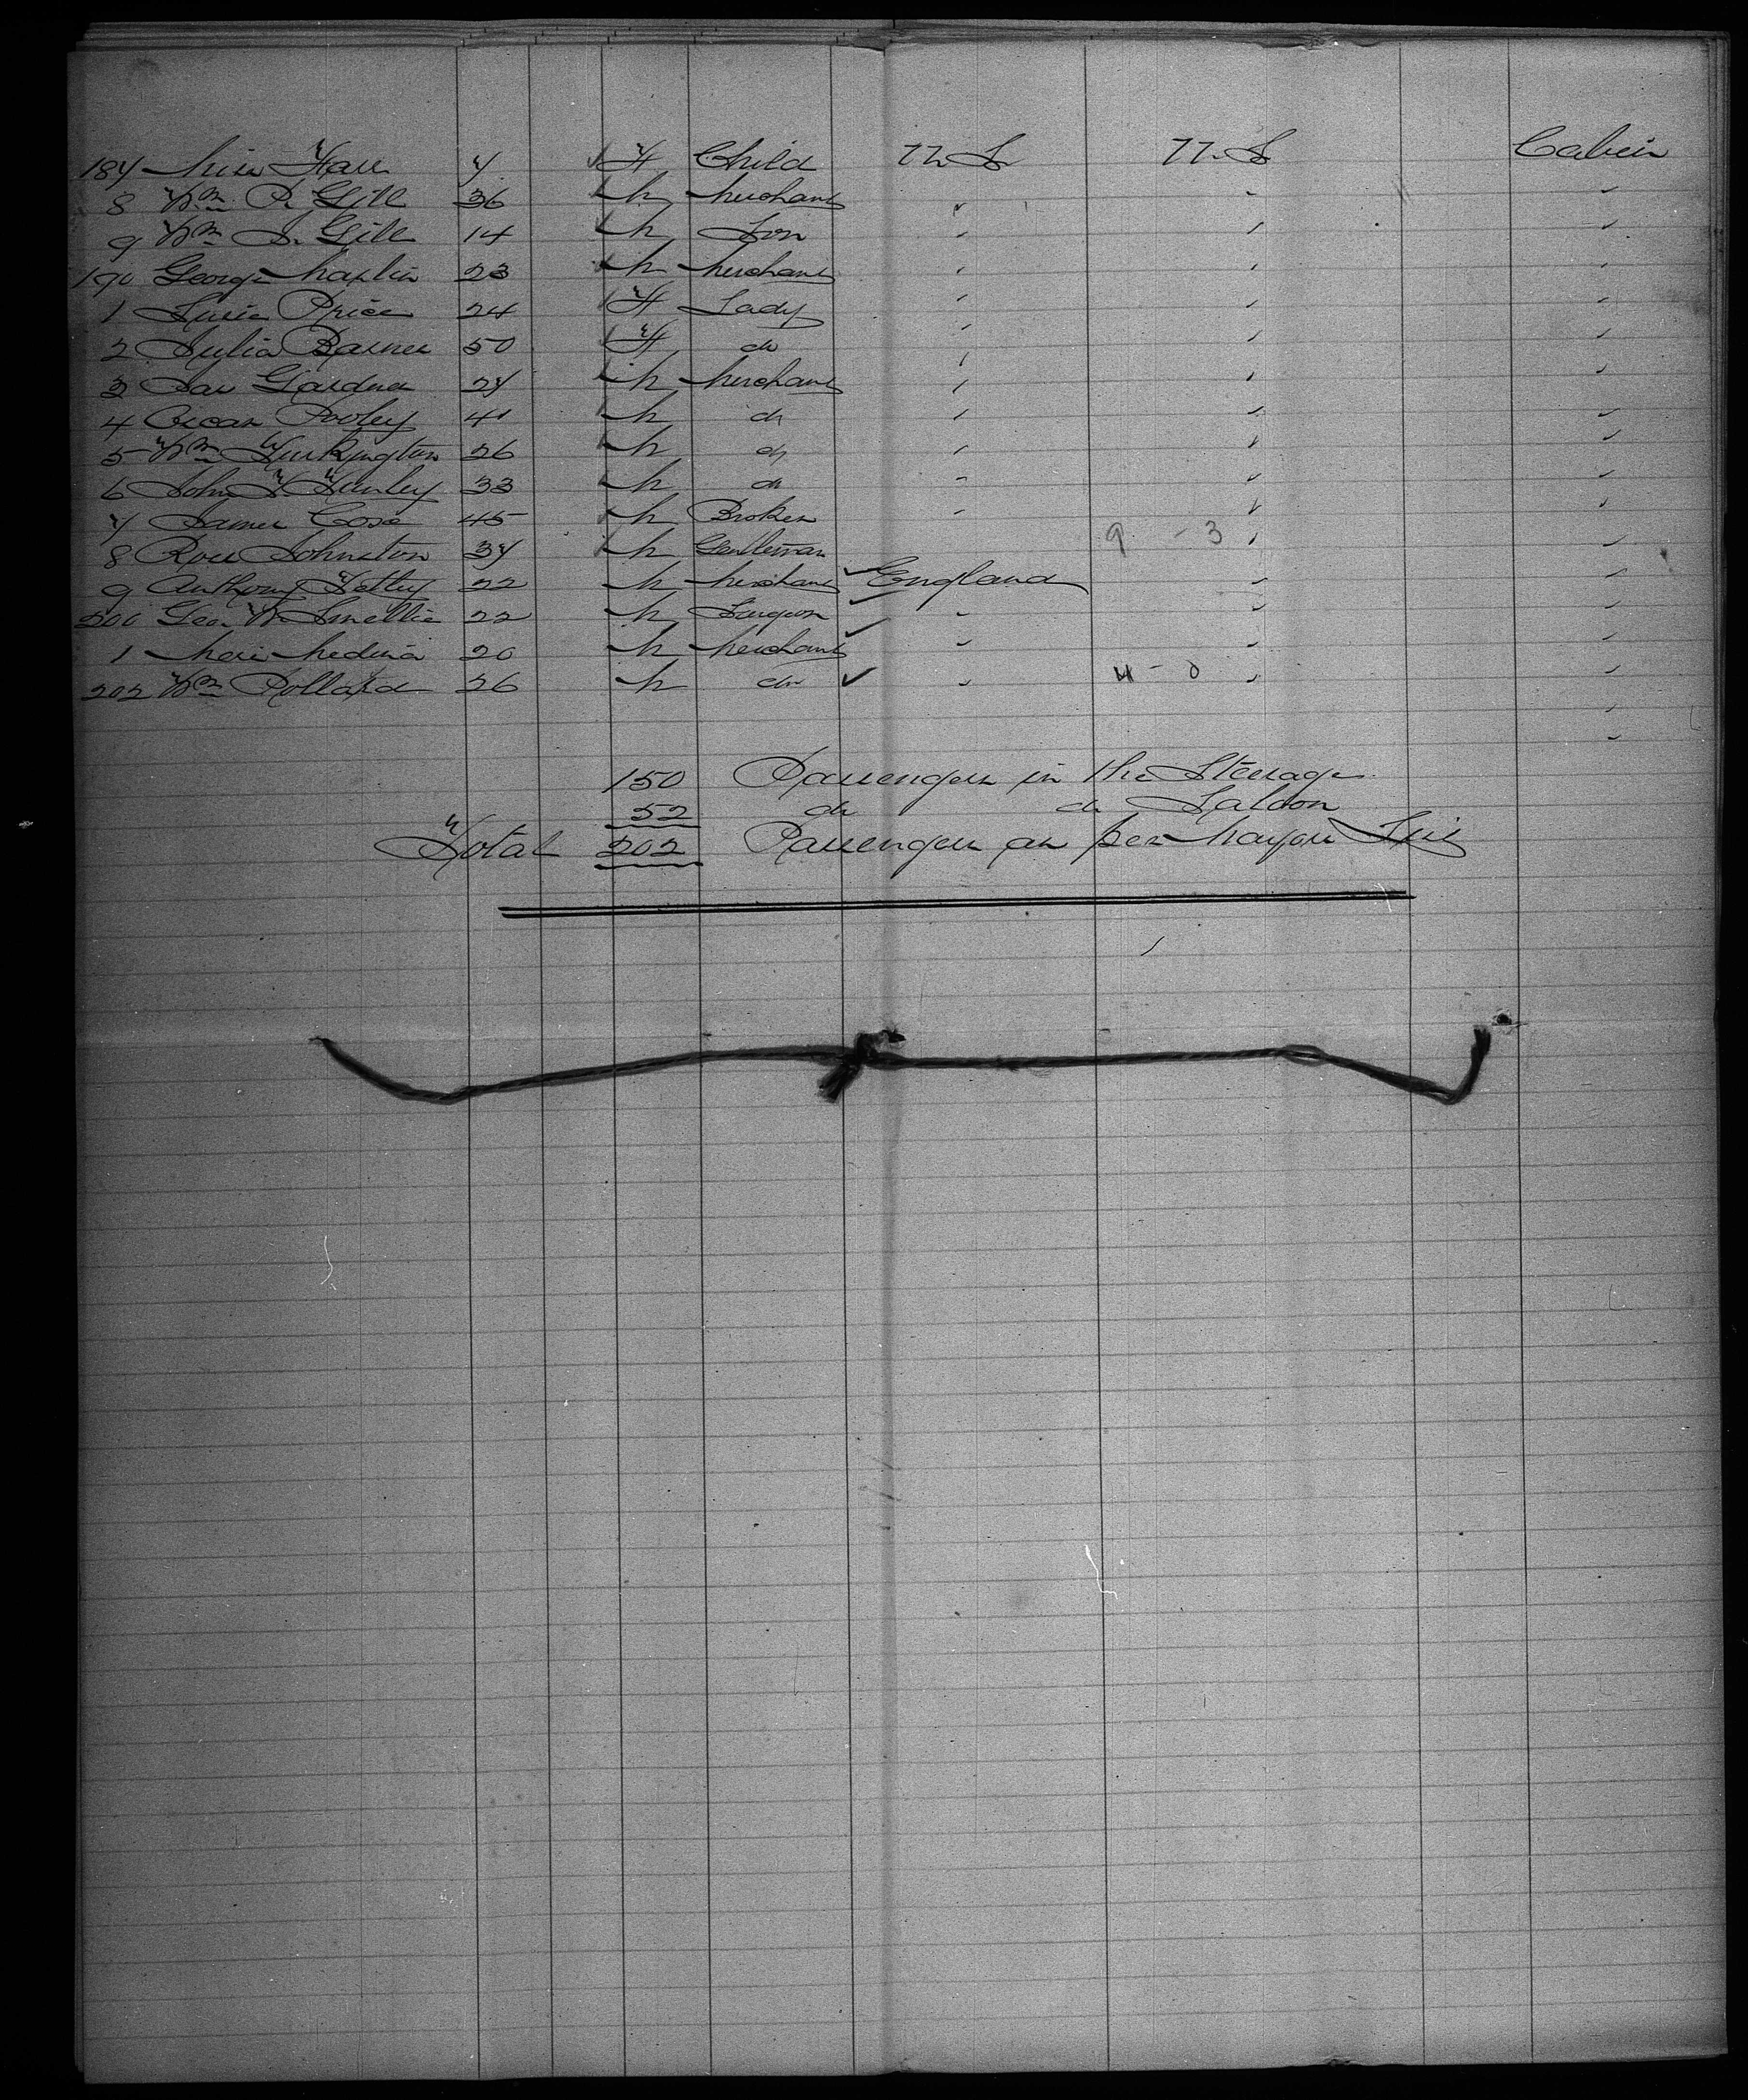 187 Miss Hall 7 F Child U.S. U.S. Cabin
8 Wm P. Gill 36 M Merchant " " "
9 Wm S. Gill 14 M Son " " "
190 George Maplin 23 M Merchant " " "
1 Susie Price 24 F Lady " " "
2 Julia Barnes 50 F do " " "
3 Gardner 27 M Merchant " " "
4 Oscar Pooley 41 M do " " "
5 Wm Turkington 26 M do " " "
6 John T Turley 33 M do " " "
7 James Cose 45 M Broker " " "
8 Ross Johnston 37 M Gentleman 9 - 3 " "
9 Anthony Tetley 22 M Merchant England " "
200 Geo. W. Smellie 22 M Surgeon " " "
1 Medina 20 M Merchant " " "
202 Wm Pollard 26 M do " 4 - 0 " "
150 Passengers in the Steerage
52 do do Saloon
Total 202 Passengers as per Mayors List